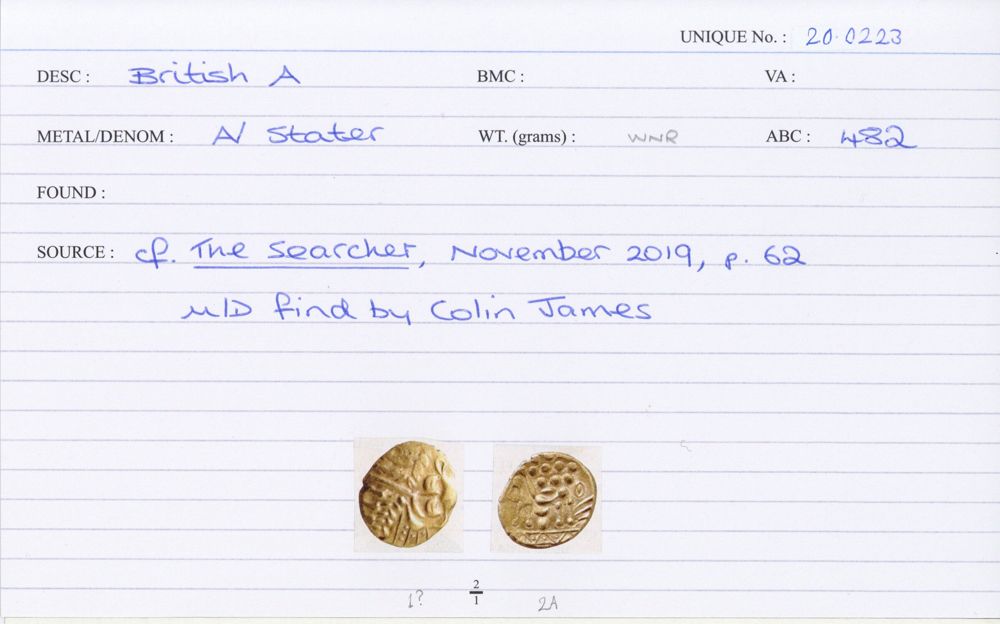 UNIQUE No. : 20.0223
DESC : British A BMC : VA :
METAL/DENOM : A/ Stater WT. (grams) : WNR ABC : 482
FOUND :
SOURCE : cf. The Searcher, November 2019, p. 62
M/D find by Colin James
1? 2/1 2A